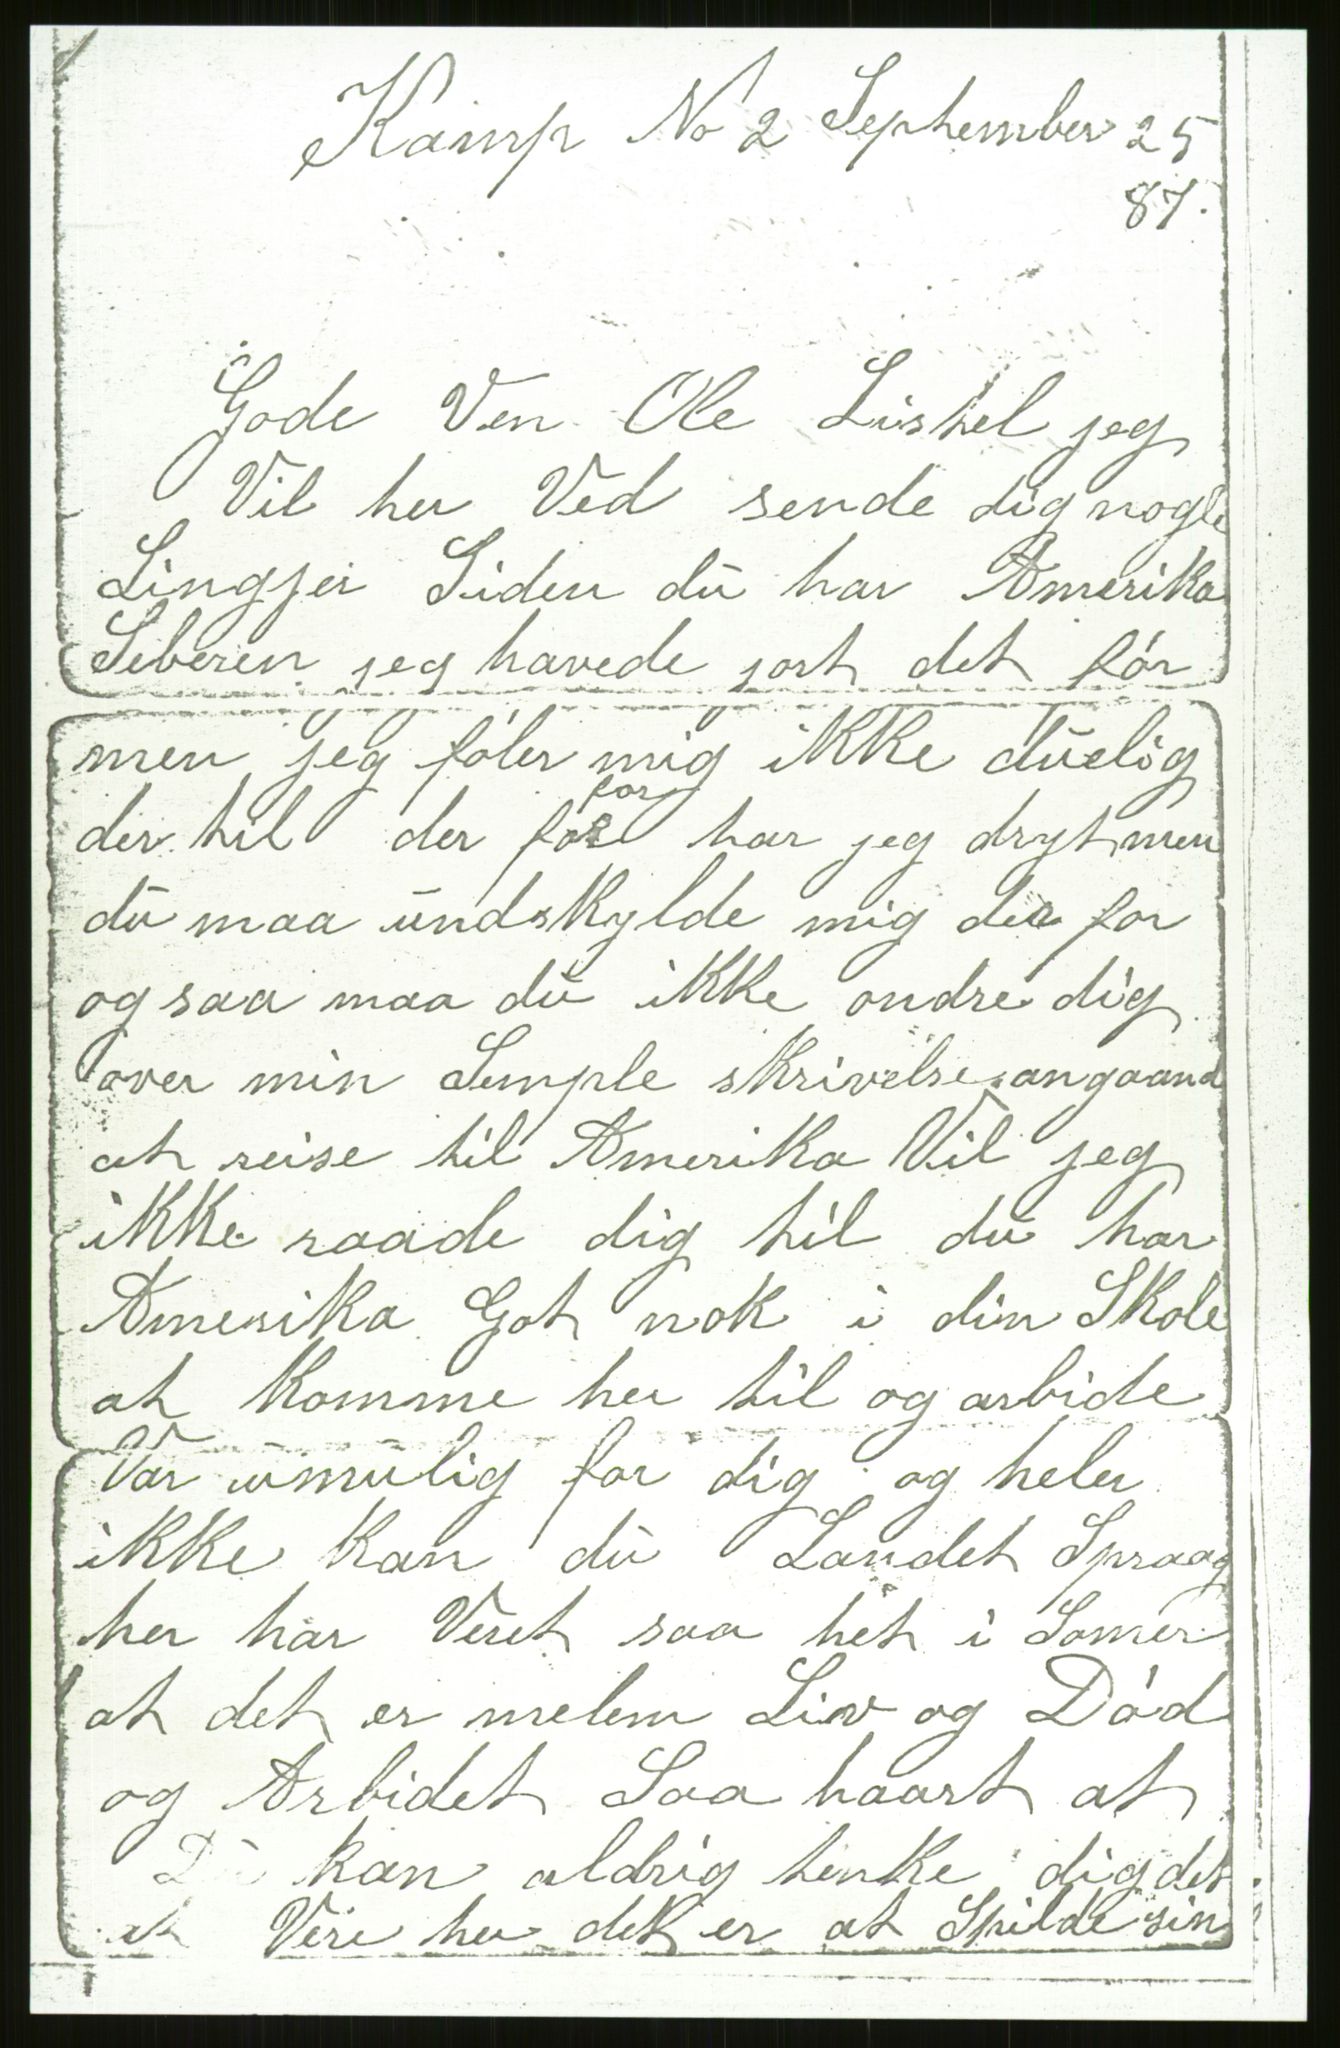 Kamp No 2 September 25
87.
Gode Ven Ole Listel jeg
Vil her Ved sende dig nogle
Lingjer Siden du har Amerika
Feberen jeg havede jort det før
men jeg føler mig ikke duelig
der til der for har jeg dryt men
for
du maa undskylde mig der for
og saa maa du ikke ondre dig
over min Semple skrivelse angaand
at reise til Amerika Vil jeg
ikke raade dig til du har
Amerika Got nok i din Skole
at komme her til og arbide
Var umulig for dig og heler
ikke kan du Landet Spraag
her har Veret saa het i Somer
at det er melem Liv og Død
og Arbidet Saa haart at
Du kan aldrig tenke dig det
at Vere her det er at Spilde sin